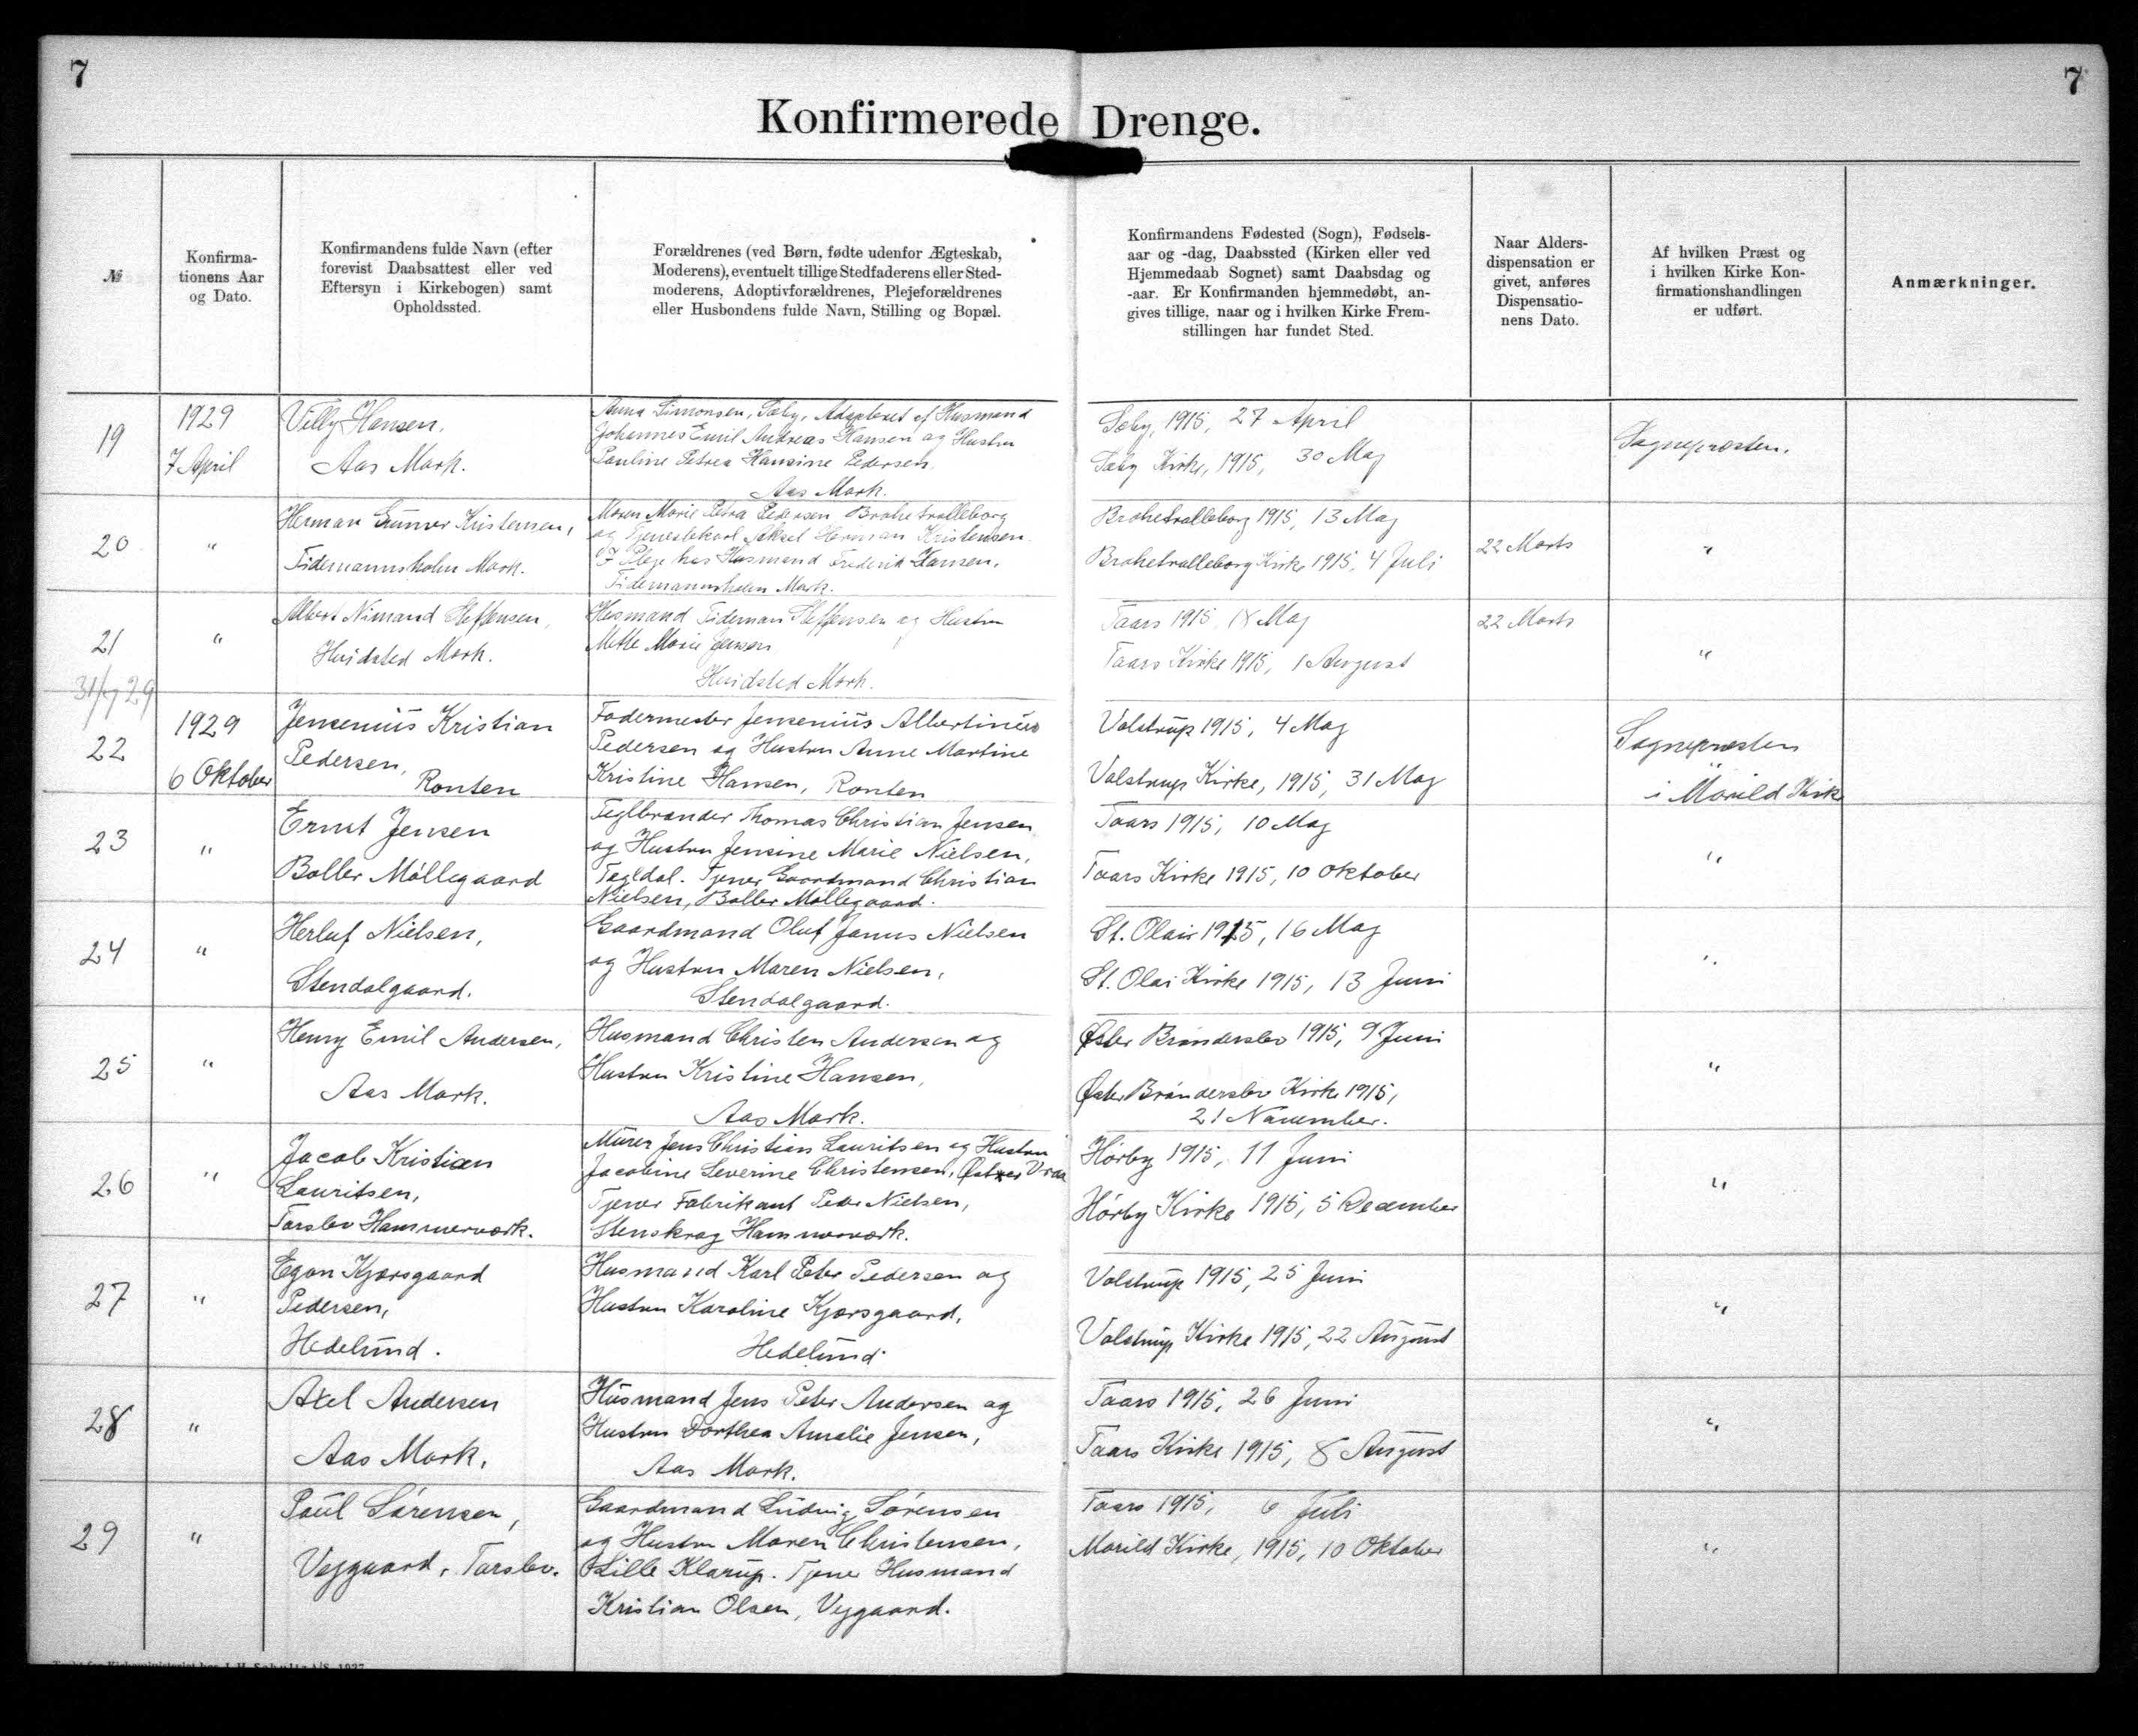 7
7
Konfirmerede Drenge.
№
Konfirma-
tionens Aar
og Dato.
Konfirmandens fulde Navn (efter
forevist Daabsattest eller ved
Eftersyn i Kirkebogen) samt
Opholdssted.
Forældrenes (ved Børn, fødte udenfor Ægteskab,
Moderens), eventuelt tillige Stedfaderens eller Sted-
moderens, Adoptivforældrenes, Plejeforældrenes
eller Husbondens fulde Navn, Stilling og Bopæl.
Konfirmandens Fødested (Sogn), Fødsels-
aar og -dag, Daabssted (Kirken eller ved
Hjemmedaab Sognet) samt Daabsdag og
-aar. Er Konfirmanden hjemmedøbt, an-
gives tillige, naar og i hvilken Kirke Frem-
stillingen har fundet Sted.
Naar Alders-
dispensation er
givet, anføres
Dispensatio-
nens Dato.
Af hvilken Præst og
i hvilken Kirke Kon-
firmationshandlingen
er udført.
Anmærkninger.
19
1929
7 April
Villy Hansen,
Aas Mark.
Anna Simonsen, Sæby, Adopteret af Husmand
Johannes Emil Andreas Hansen og Hustru
Pauline Petrea Hansine Pedersen.
Aas Mark.
Sæby, 1915, 27 April
Sæby Kirke, 1915, 30 Maj
Sognepræsten.
20
"
Herman Gunner Kristensen,
Tidemannsholm Mark.
Maren Marie Petra Pedersen Brahetrolleborg
og Tjenestekarl Aksel Herman Kristensen.
I Pleje hos Husmand Frederik Hansen,
Tidemannsholm Mark.
Brahetrolleborg 1915, 13 Maj
Brahetrolleborg Kirke 1915, 4 Juli
22 Marts
"
21
"
Albert Nimand Steffensen,
Hvidsted Mark.
Husmand Tideman Steffensen og Hustru
Mette Marie Jensen
Hvidsted Mark.
Taars 1915, 18 Maj
Taars Kirke 1915, 1 August
22 Marts
"
22
1929
6 Oktober
Jensenius Kristian
Pedersen,
Ronten
Fodermester Jensenius Albertinus
Pedersen og Hustru Anne Martine
Kristine Hansen, Ronten
Volstrup 1915, 4 Maj
Volstrup Kirke, 1915, 31 Maj
Sognepræsten
i Morild Kirke
23
"
Ernst Jensen
Boller Møllegaard
Teglbrænder Thomas Christian Jensen
og Hustru Jensine Marie Nielsen,
Tegldal. Tjener Gaardmand Christian
Nielsen, Boller Møllegaard.
Taars 1915, 10 Maj
Taars Kirke 1915, 10 Oktober
"
24
"
Herluf Nielsen,
Stendalgaard.
Gaardmand Oluf Janus Nielsen
og Hustru Maren Nielsen,
Stendalgaard.
St. Olai 1915, 16 Maj
St. Olai Kirke 1915, 13 Juni
"
25
"
Henry Emil Andersen,
Aas Mark.
Husmand Christen Andersen og
Hustru Kristine Hansen,
Aas Mark.
Øster Brønderslev 1915, 9 Juni
Øster Brønderslev Kirke 1915,
21 November.
"
26
"
Jacob Kristian
Lauritsen,
Tørslev Hammerværk.
Murer Jens Christian Lauritsen og Hustru
Jacobine Severine Christensen, Øster Vraa
Tjener Fabrikant Peder Nielsen,
Stenskrog Hammerværk.
Hørby 1915, 11 Juni
Hørby Kirke 1915, 5 December
"
27
"
Egon Kjærsgaard
Pedersen,
Hedelund.
Husmand Karl Peter Pedersen og
Hustru Karoline Kjærsgaard,
Hedelund
Volstrup 1915, 25 Juni
Volstrup Kirke 1915, 22 August
"
28
"
Axel Andersen
Aas Mark.
Husmand Jens Peter Andersen og
Hustru Dorthea Amalie Jensen,
Aas Mark.
Taars 1915, 26 Juni
Taars Kirke 1915, 8 August
"
29
"
Poul Sørensen,
Vejgaard, Tørslev.
Gaardmand Ludvig Sørensen
og Hustru Maren Christensen,
Lille Klarup. Tjener Husmand
Kristian Olsen, Vejgaard.
Taars 1915, 6 Juli
Morild Kirke, 1915, 10 Oktober
"